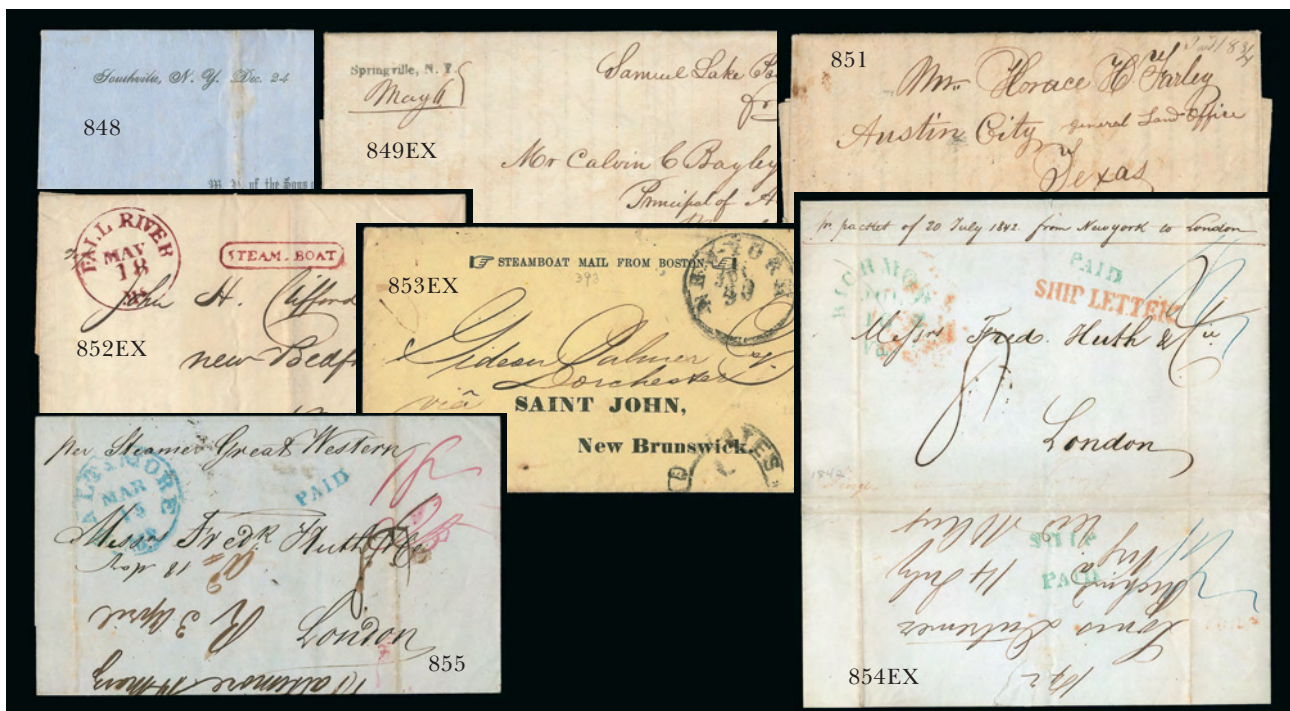 Southville, N. Y. Dec. 24
848
Springville, N. Y.
May
Samuel Lake
849EX
Mr Calvin C Bayley
Principal of
851
Paid 18 3/4
Mr. Horace H Farley
Austin City General Land Office
Texas
FALL RIVER
MAY
18
STEAM-BOAT
John H. Clifford
852EX
new Bedf
STEAMBOAT MAIL FROM BOSTON
393
853EX
NEW-YORK
30
Gideon Palmer
Dorchester
via
SAINT JOHN,
New Brunswick.
pr. packet of 20 July 1842. from New york to London
RICHMOND
PAID
SHIP LETTER
Messrs Fred. Huth & Co.
London
1842
SHIP
PAID
Richmd
14 July
Louis
854EX
per Steamer Great Western
BALTIMORE
MAR
PAID
Messrs Fredk Huth & Co
18
R 3 April
London
Baltimore
855